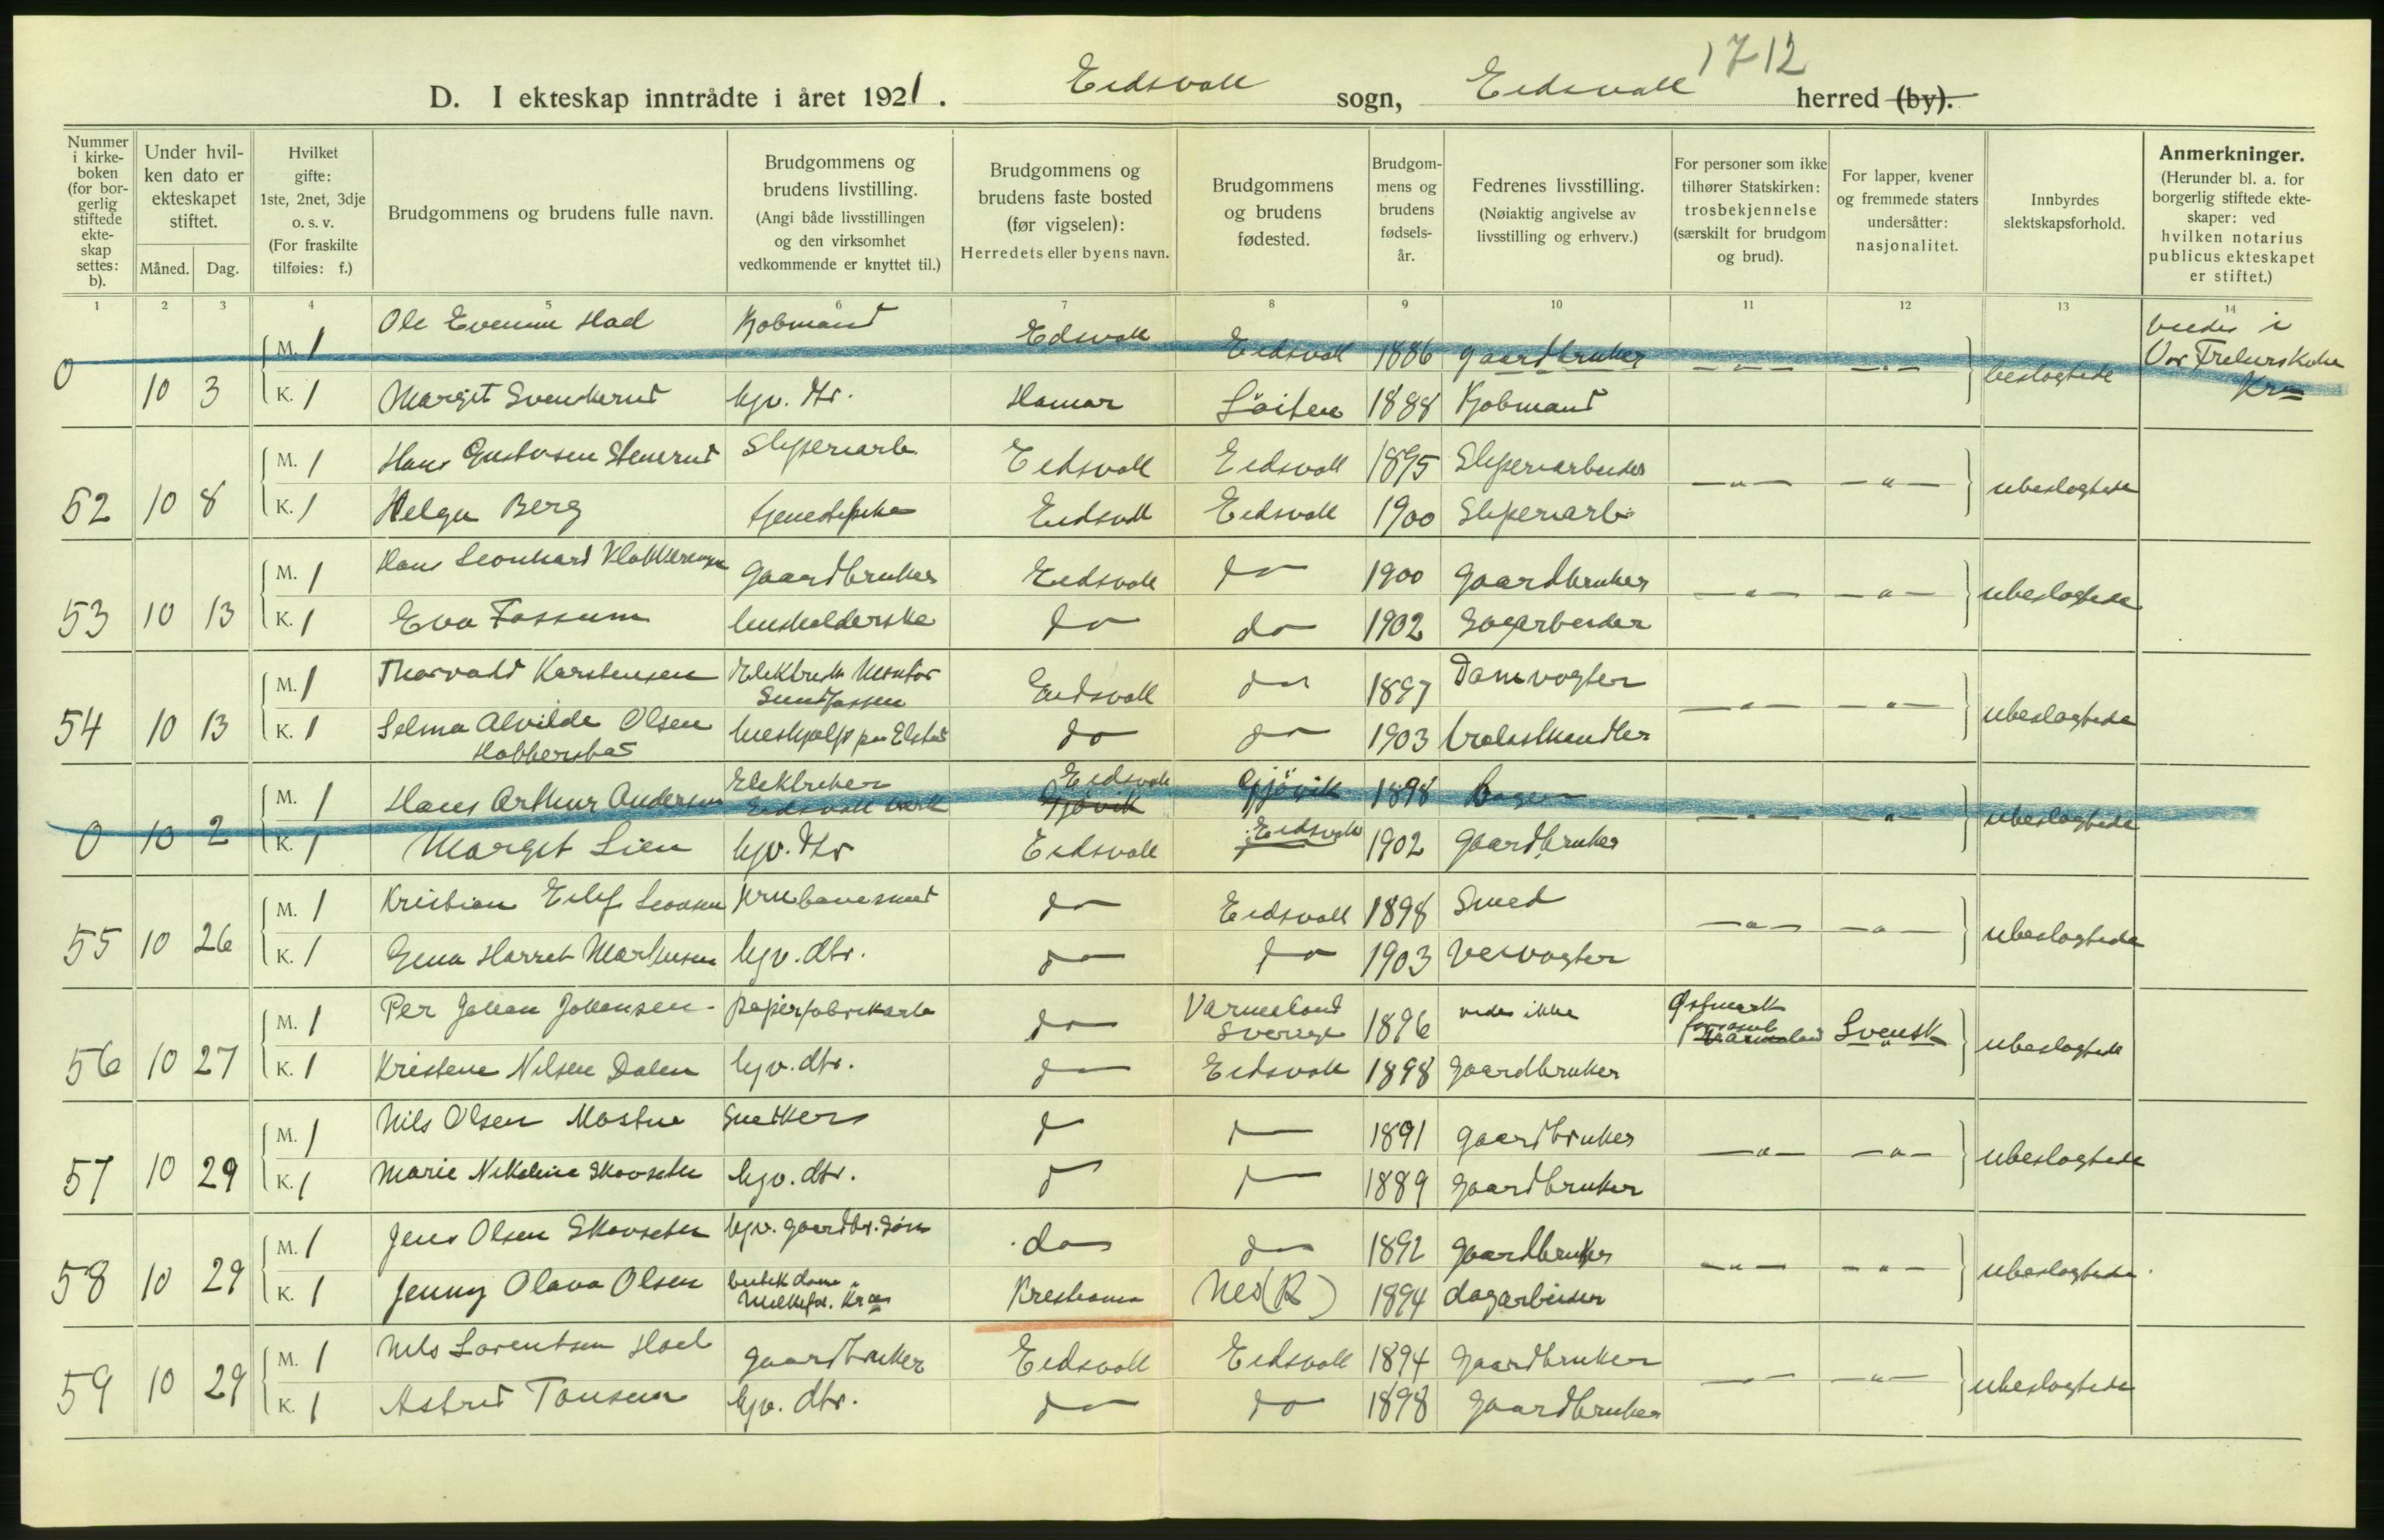 1712
D. I ekteskap inntrådte i året 1921. Eidsvoll sogn, Eidsvoll herred (by).
Nummer i kirkeboken (for borgerlig stiftede ekteskap settes: b).
Under hvilken dato er ekteskapet stiftet.
Måned. Dag.
Hvilket gifte: 1ste, 2net, 3dje o. s. v. (For fraskilte tilføies: f.)
Brudgommens og brudens fulle navn.
Brudgommens og brudens livstilling. (Angi både livsstillingen og den virksomhet vedkommende er knyttet til.)
Brudgommens og brudens faste bosted (før vigselen): Herredets eller byens navn.
Brudgommens og brudens fødested.
Brudgommens og brudens fødselsår.
Fedrenes livsstilling. (Nøiaktig angivelse av livsstilling og erhverv.)
For personer som ikke tilhører Statskirken: trosbekjennelse (særskilt for brudgom og brud).
For lapper, kvener og fremmede staters undersåtter: nasjonalitet.
Innbyrdes slektskapsforhold.
Anmerkninger. (Herunder bl. a. for borgerlig stiftede ekteskaper: ved hvilken notarius publicus ekteskapet er stiftet.)
1 2 3 4 5 6 7 8 9 10 11 12 13 14
0 10 3 M. 1 Ole Evensen Hoel Kjøbmand Eidsvoll Eidsvoll 1886 gaardbruker —"— —"— beslegtede viede i Vor Frelsers Kirke Kra
K. 1 Margit Svenkerud hjv. dtr. Hamar Löiten 1888 Kjøbmand
52 10 8 M. 1 Hans Gustavsen Stenerud Sliperiarb. Eidsvoll Eidsvoll 1895 Sliperiarbeider —"— —"— ubeslegtede
K. 1 Helga Berg tjenestepike Eidsvoll Eidsvoll 1900 Sliperiarb.
53 10 13 M. 1 Hans Leonhard gaardbruker Eidsvoll do 1900 gaardbruker —"— —"— ubeslegtede
K. 1 Eva Fossum husholderske do do 1902 Sagarbeider
54 10 13 M. 1 Thorvald Karstensen Elektrisk Montør Sundfossen Eidsvoll do 1897 Damvogter —"— —"— ubeslegtede
K. 1 Selma Alvilde Olsen Habberstad hushjælp paa Elstad do do 1903 trælasthandler
0 10 2 M. 1 Hans Arthur Andersen Elektriker Eidsvoll verk Eidsvoll Gjövik Gjövik 1898 Bager —"— —"— ubeslegtede
K. 1 Margit Lien hjv. dtr Eidsvoll Eidsvoll 1902 gaardbruker
55 10 26 M. 1 Kristian Eilif Leonsen do Eidsvoll 1898 Smed —"— —"— ubeslegtede
K. 1 Harriet Martinsen hjv. dtr. do do 1903 Veivogter
56 10 27 M. 1 Per Johan Johansen papirfabrikarb do Varmeland Sverige 1896 vides ikke Østmark Värmeland Svensk ubeslegtede
K. 1 Kristine Nilsen Dalen hjv. dtr. do Eidsvoll 1898 gaardbruker
57 10 29 M. 1 Nils Olsen Mostue Snekker do do 1891 gaardbruker —"— —"— ubeslegtede
K. 1 Marie Nikoline Skovseter hjv. dtr. do do 1889 gaardbruker
58 10 29 M. 1 Jens Olsen Skovseter hjv. gaardbr. søn do do 1892 gaardbruker —"— —"— ubeslegtede
K. 1 Jenny Olava Olsen butikdame Kra Kristiania Nes (R) 1894 dagarbeider
59 10 29 M. 1 Nils Lorentsen Hoel gaardbruker Eidsvoll Eidsvoll 1894 gaardbruker —"— —"— ubeslegtede
K. 1 Astrid Tonsen hjv. dtr. do do 1898 gaardbruker